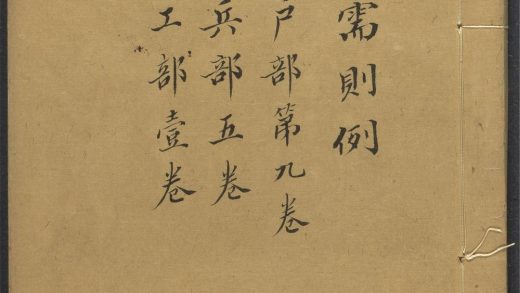 需則例
戶部第九卷
兵部五卷
工部壹卷